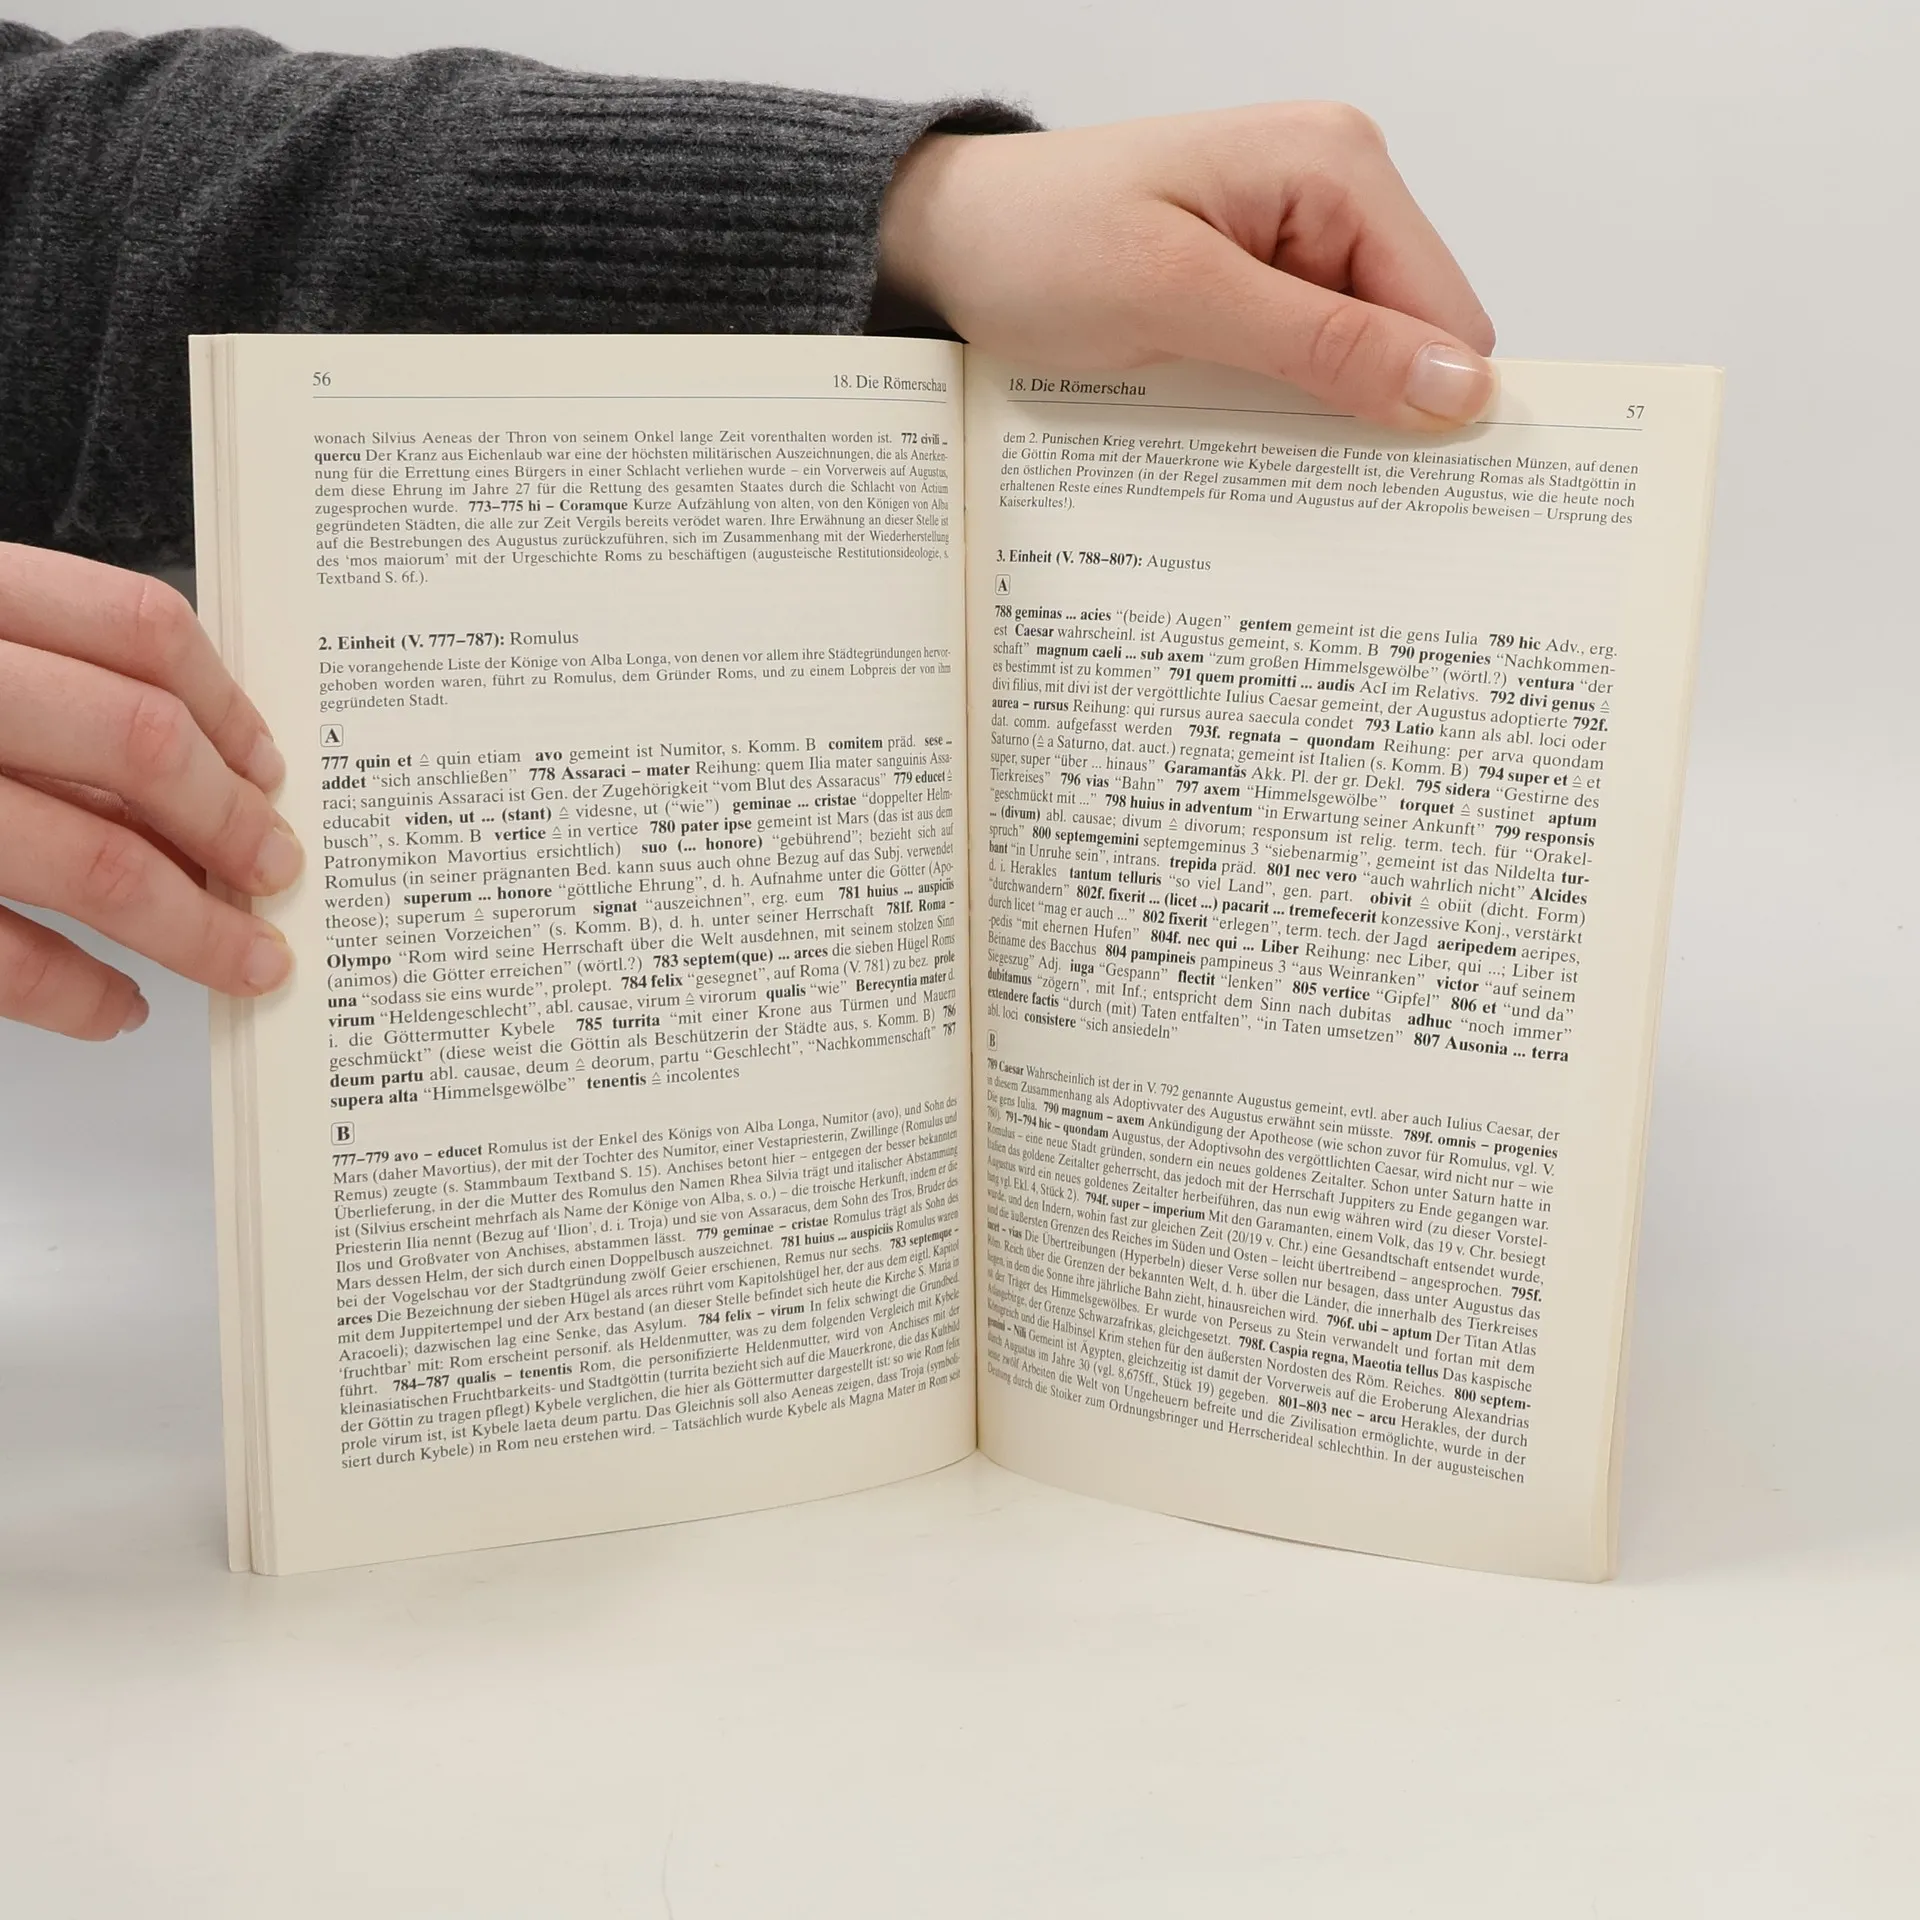 56
18. Die Römerschau
wonach Silvius Aeneas der Thron von seinem Onkel lange Zeit vorenthalten worden ist. 772 civili ...
quercu Der Kranz aus Eichenlaub war eine der höchsten militärischen Auszeichnungen, die als Anerken-
nung für die Errettung eines Bürgers in einer Schlacht verliehen wurde – ein Vorverweis auf Augustus,
dem diese Ehrung im Jahre 27 für die Rettung des gesamten Staates durch die Schlacht von Actium
zugesprochen wurde. 773–775 hi – Coramque Kurze Aufzählung von alten, von den Königen von Alba
gegründeten Städten, die alle zur Zeit Vergils bereits verödet waren. Ihre Erwähnung an dieser Stelle ist
auf die Bestrebungen des Augustus zurückzuführen, sich im Zusammenhang mit der Wiederherstellung
des 'mos maiorum' mit der Urgeschichte Roms zu beschäftigen (augusteische Restitutionsideologie, s.
Textband S. 6f.).
2. Einheit (V. 777–787): Romulus
Die vorangehende Liste der Könige von Alba Longa, von denen vor allem ihre Städtegründungen hervor-
gehoben worden waren, führt zu Romulus, dem Gründer Roms, und zu einem Lobpreis der von ihm
gegründeten Stadt.
A
777 quin et ≙ quin etiam avo gemeint ist Numitor, s. Komm. B comitem präd. sese ...
addet “sich anschließen” 778 Assaraci – mater Reihung: quem Ilia mater sanguinis Assa-
raci; sanguinis Assaraci ist Gen. der Zugehörigkeit “vom Blut des Assaracus” 779 educet ≙
educabit viden, ut ... (stant) ≙ videsne, ut (“wie”) geminae ... cristae “doppelter Helm-
busch”, s. Komm. B vertice ≙ in vertice 780 pater ipse gemeint ist Mars (das ist aus dem
Patronymikon Mavortius ersichtlich) suo (... honore) “gebührend”; bezieht sich auf
Romulus (in seiner prägnanten Bed. kann suus auch ohne Bezug auf das Subj. verwendet
werden) superum ... honore “göttliche Ehrung”, d. h. Aufnahme unter die Götter (Apo-
theose); superum ≙ superorum signat “auszeichnen”, erg. eum 781 huius ... auspiciis
“unter seinen Vorzeichen” (s. Komm. B), d. h. unter seiner Herrschaft 781f. Roma –
Olympo “Rom wird seine Herrschaft über die Welt ausdehnen, mit seinem stolzen Sinn
(animos) die Götter erreichen” (wörtl.?) 783 septem(que) ... arces die sieben Hügel Roms
una “sodass sie eins wurde”, prolept. 784 felix “gesegnet”, auf Roma (V. 781) zu bez. prole
virum “Heldengeschlecht”, abl. causae, virum ≙ virorum qualis “wie” Berecyntia mater d.
i. die Göttermutter Kybele 785 turrita “mit einer Krone aus Türmen und Mauern
geschmückt” (diese weist die Göttin als Beschützerin der Städte aus, s. Komm. B) 786
deum partu abl. causae, deum ≙ deorum, partu “Geschlecht”, “Nachkommenschaft” 787
supera alta “Himmelsgewölbe” tenentis ≙ incolentes
B
777–779 avo – educet Romulus ist der Enkel des Königs von Alba Longa, Numitor (avo), und Sohn des
Mars (daher Mavortius), der mit der Tochter des Numitor, einer Vestapriesterin, Zwillinge (Romulus und
Remus) zeugte (s. Stammbaum Textband S. 15). Anchises betont hier – entgegen der besser bekannten
Überlieferung, in der die Mutter des Romulus den Namen Rhea Silvia trägt und italischer Abstammung
ist (Silvius erscheint mehrfach als Name der Könige von Alba, s. o.) – die troische Herkunft, indem er die
Priesterin Ilia nennt (Bezug auf 'Ilion', d. i. Troja) und sie von Assaracus, dem Sohn des Tros, Bruder des
Ilos und Großvater von Anchises, abstammen lässt. 779 geminae – cristae Romulus trägt als Sohn des
Mars dessen Helm, der sich durch einen Doppelbusch auszeichnet. 781 huius ... auspiciis Romulus waren
bei der Vogelschau vor der Stadtgründung zwölf Geier erschienen, Remus nur sechs. 783 septemque –
arces Die Bezeichnung der sieben Hügel als arces rührt vom Kapitolshügel her, der aus dem eigtl. Kapitol
mit dem Juppitertempel und der Arx bestand (an dieser Stelle befindet sich heute die Kirche S. Maria in
Aracoeli); dazwischen lag eine Senke, das Asylum. 784 felix – virum In felix schwingt die Grundbed.
'fruchtbar' mit: Rom erscheint personif. als Heldenmutter, was zu dem folgenden Vergleich mit Kybele
führt. 784–787 qualis – tenentis Rom, die personifizierte Heldenmutter, wird von Anchises mit der
kleinasiatischen Fruchtbarkeits- und Stadtgöttin (turrita bezieht sich auf die Mauerkrone, die das Kultbild
der Göttin zu tragen pflegt) Kybele verglichen, die hier als Göttermutter dargestellt ist: so wie Rom felix
prole virum ist, ist Kybele laeta deum partu. Das Gleichnis soll also Aeneas zeigen, dass Troja (symboli-
siert durch Kybele) in Rom neu erstehen wird. – Tatsächlich wurde Kybele als Magna Mater in Rom seit
18. Die Römerschau
57
dem 2. Punischen Krieg verehrt. Umgekehrt beweisen die Funde von kleinasiatischen Münzen, auf denen
die Göttin Roma mit der Mauerkrone wie Kybele dargestellt ist, die Verehrung Romas als Stadtgöttin in
den östlichen Provinzen (in der Regel zusammen mit dem noch lebenden Augustus, wie die heute noch
erhaltenen Reste eines Rundtempels für Roma und Augustus auf der Akropolis beweisen – Ursprung des
Kaiserkultes!).
3. Einheit (V. 788–807): Augustus
A
788 geminas ... acies “(beide) Augen” gentem gemeint ist die gens Iulia 789 hic Adv., erg.
est Caesar wahrscheinl. ist Augustus gemeint, s. Komm. B 790 progenies “Nachkommen-
schaft” magnum caeli ... sub axem “zum großen Himmelsgewölbe” (wörtl.?) ventura “der
es bestimmt ist zu kommen” 791 quem promitti ... audis AcI im Relativs. 792 divi genus ≙
divi filius, mit divi ist der vergöttlichte Iulius Caesar gemeint, der Augustus adoptierte 792f.
aurea – rursus Reihung: qui rursus aurea saecula condet 793 Latio kann als abl. loci oder
dat. comm. aufgefasst werden 793f. regnata – quondam Reihung: per arva quondam
Saturno (≙ a Saturno, dat. auct.) regnata; gemeint ist Italien (s. Komm. B) 794 super et ≙ et
super, super “über ... hinaus” Garamantăs Akk. Pl. der gr. Dekl. 795 sidera “Gestirne des
Tierkreises” 796 vias “Bahn” 797 axem “Himmelsgewölbe” torquet ≙ sustinet aptum
“geschmückt mit ...” 798 huius in adventum “in Erwartung seiner Ankunft” 799 responsis
... (divum) abl. causae; divum ≙ divorum; responsum ist relig. term. tech. für “Orakel-
spruch” 800 septemgemini septemgeminus 3 “siebenarmig”, gemeint ist das Nildelta tur-
bant “in Unruhe sein”, intrans. trepida präd. 801 nec vero “auch wahrlich nicht” Alcides
d. i. Herakles tantum telluris “so viel Land”, gen. part. obivit ≙ obiit (dicht. Form)
“durchwandern” 802f. fixerit ... (licet ...) pacarit ... tremefecerit konzessive Konj., verstärkt
durch licet “mag er auch ...” 802 fixerit “erlegen”, term. tech. der Jagd aeripedem aeripes,
-pedis “mit ehernen Hufen” 804f. nec qui ... Liber Reihung: nec Liber, qui ...; Liber ist
Beiname des Bacchus 804 pampineis pampineus 3 “aus Weinranken” victor “auf seinem
Siegeszug” Adj. iuga “Gespann” flectit “lenken” 805 vertice “Gipfel” 806 et “und da”
dubitamus “zögern”, mit Inf.; entspricht dem Sinn nach dubitas adhuc “noch immer”
extendere factis “durch (mit) Taten entfalten”, “in Taten umsetzen” 807 Ausonia ... terra
abl. loci consistere “sich ansiedeln”
B
789 Caesar Wahrscheinlich ist der in V. 792 genannte Augustus gemeint, evtl. aber auch Iulius Caesar, der
in diesem Zusammenhang als Adoptivvater des Augustus erwähnt sein müsste. 789f. omnis – progenies
Die gens Iulia. 790 magnum – axem Ankündigung der Apotheose (wie schon zuvor für Romulus, vgl. V.
780). 791–794 hic – quondam Augustus, der Adoptivsohn des vergöttlichten Caesar, wird nicht nur – wie
Romulus – eine neue Stadt gründen, sondern ein neues goldenes Zeitalter. Schon unter Saturn hatte in
Italien das goldene Zeitalter geherrscht, das jedoch mit der Herrschaft Juppiters zu Ende gegangen war.
Augustus wird ein neues goldenes Zeitalter herbeiführen, das nun ewig währen wird (zu dieser Vorstel-
lung vgl. Ekl. 4, Stück 2). 794f. super – imperium Mit den Garamanten, einem Volk, das 19 v. Chr. besiegt
wurde, und den Indern, wohin fast zur gleichen Zeit (20/19 v. Chr.) eine Gesandtschaft entsendet wurde,
sind die äußersten Grenzen des Reiches im Süden und Osten – leicht übertreibend – angesprochen. 795f.
iacet – vias Die Übertreibungen (Hyperbeln) dieser Verse sollen nur besagen, dass unter Augustus das
Röm. Reich über die Grenzen der bekannten Welt, d. h. über die Länder, die innerhalb des Tierkreises
liegen, in dem die Sonne ihre jährliche Bahn zieht, hinausreichen wird. 796f. ubi – aptum Der Titan Atlas
ist der Träger des Himmelsgewölbes. Er wurde von Perseus zu Stein verwandelt und fortan mit dem
Atlasgebirge, der Grenze Schwarzafrikas, gleichgesetzt. 798f. Caspia regna, Maeotia tellus Das kaspische
Königreich und die Halbinsel Krim stehen für den äußersten Nordosten des Röm. Reiches. 800 septem-
gemini – Nili Gemeint ist Ägypten, gleichzeitig ist damit der Vorverweis auf die Eroberung Alexandrias
durch Augustus im Jahre 30 (vgl. 8,675ff., Stück 19) gegeben. 801–803 nec – arcu Herakles, der durch
seine zwölf Arbeiten die Welt von Ungeheuern befreite und die Zivilisation ermöglichte, wurde in der
Deutung durch die Stoiker zum Ordnungsbringer und Herrscherideal schlechthin. In der augusteischen